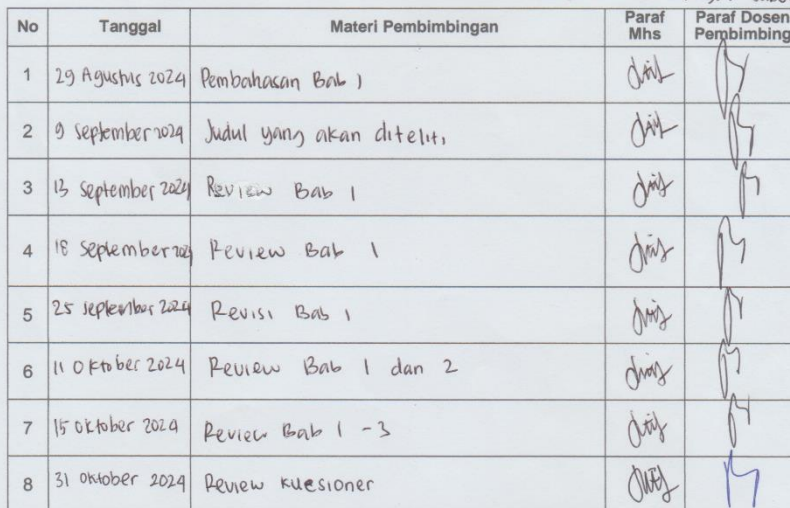 No Tanggal Materi Pembimbingan Paraf Mhs Paraf Dosen Pembimbing
1 29 Agustus 2024 Pembahasan Bab 1
2 9 September 2024 Judul yang akan diteliti
3 13 September 2024 Review Bab 1
4 18 September 2024 Review Bab 1
5 25 September 2024 Revisi Bab 1
6 11 Oktober 2024 Review Bab 1 dan 2
7 15 Oktober 2024 Review Bab 1 - 3
8 31 Oktober 2024 Review kuesioner